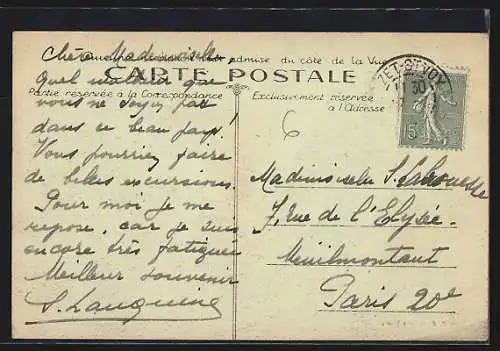 Chère Mademoiselle,
admise du côté de la Vue
CARTE POSTALE
Partie réservée à la Correspondance
Exclusivement réservée
à l'Adresse
Quel malheur que
vous ne soyez pas
dans ce beau pays!
Vous pourriez faire
de belles excursions.
Pour moi je me
repose, car je suis
encore très fatiguée
Meilleur souvenir
S.
6
30
Mademoiselle S.
7, Rue de l'Elysée.
Ménilmontant
Paris 20e